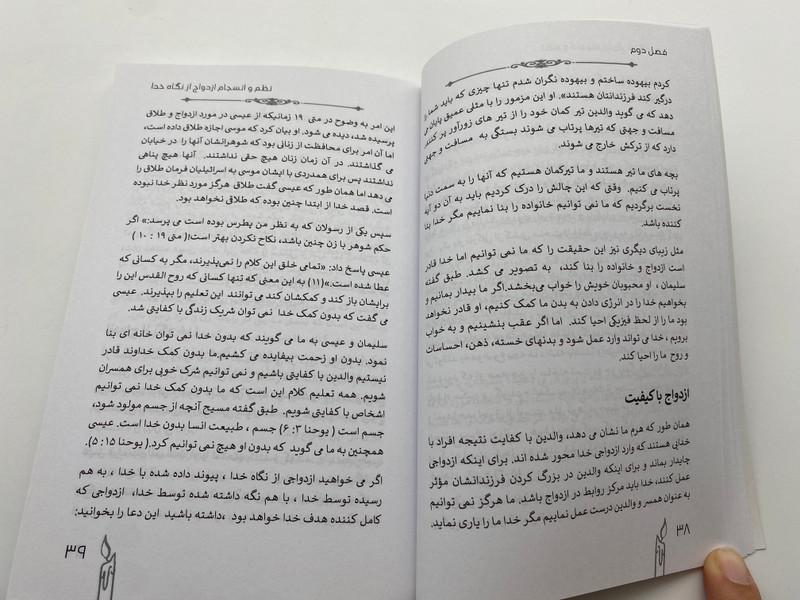 فصل دوم
کردم بیهوده ساختم و بیهوده نگران شدم تنها چیزی که باید شما را
درگیر کند فرزندانتان هستند». او این مزمور را با مثلی عمیق پایان می
دهد که می گوید والدین تیر کمان خود را از تیر های زورآور پر کنند.
مسافت و جهتی که تیرها پرتاب می شوند بستگی به مسافت و جهتی
دارد که از ترکش خارج می شوند.
بچه های ما تیر هستند و ما تیرکمان هستیم که آنها را به سمت دنیا
پرتاب می کنیم. وقتی که این چالش را درک کردیم باید به آن دو آیه
نخست برگردیم که ما نمی توانیم خانواده را بنا نماییم مگر خدا بنا
کننده باشد.
مثل زیبای دیگری نیز این حقیقت را که ما نمی توانیم اما خدا قادر
است ازدواج و خانواده را بنا کند، به تصویر می کشد. طبق گفته
سلیمان ، او محبوبان خویش را خواب می‌بخشد.اگر ما بیدار بمانیم و
بخواهیم خدا را در انرژی دادن به بدن ما کمک کنیم، او قادر نخواهد
بود ما را از لحظ فیزیکی احیا کند. اما اگر عقب بنشینیم و به خواب
برویم ، خدا می تواند وارد عمل شود و بدنهای خسته، ذهن، احساسات
و روح ما را احیا کند.
ازدواج با کیفیت
همان طور که هرم ما نشان می دهد، والدین با کفایت نتیجه افراد با
خدایی هستند که وارد ازدواج خدا محور شده اند. برای اینکه ازدواجی
پایدار بماند و برای اینکه والدین در بزرگ کردن فرزندانشان مؤثر
عمل کنند، خدا باید مرکز روابط در ازدواج باشد. ما هرگز نمی توانیم
به عنوان همسر و والدین درست عمل نماییم مگر خدا ما را یاری نماید.
۳۸
نظم و انسجام ازدواج از نگاه خدا
این امر به وضوح در متی ۱۹ زمانیکه از عیسی در مورد ازدواج و طلاق
پرسیده شد، دیده می شود. او بیان کرد که موسی اجازه طلاق داده است،
اما آن امر برای محافظت از زنانی بود که شوهرانشان آنها را در خیابان
می گذاشتند. در آن زمان زنان هیچ حقی نداشتند. آنها هیچ پناهی
نداشتند پس برای همدردی با ایشان موسی به اسرائیلیان فرمان طلاق را
می دهد اما همان طور که عیسی گفت طلاق هرگز مورد نظر خدا نبوده
است. قصد خدا از ابتدا چنین بوده که طلاق نخواهد بود.
سپس یکی از رسولان که به نظر من پطرس بوده است می پرسد:» اگر
حکم شوهر با زن چنین باشد، نکاح نکردن بهتر است!( متی ۱۹ : ۱۰ )
عیسی پاسخ داد: «تمامی خلق این کلام را نمی‌پذیرند، مگر به کسانی که
عطا شده است.»(۱۱) به این معنی که تنها کسانی که روح القدس این را
برایشان باز کند و کمکشان کند می توانند این تعلیم را بپذیرند. عیسی
می گفت که بدون کمک خدا نمی توان شریک زندگی با کفایتی شد.
سلیمان و عیسی به ما می گویند که بدون خدا نمی توان خانه ای بنا
نمود. بدون او زحمت بیفایده می کشیم.ما بدون کمک خداوند قادر
نیستیم والدین با کفایتی باشیم و نمی توانیم شرک خوبی برای همسران
شویم. همه تعلیم کلام این است که ما بدون کمک خدا نمی توانیم
اشخاص با کفایتی شویم. طبق گفته مسیح آنچه از جسم مولود شود،
جسم است ( یوحنا ۳: ۶) جسم ، طبیعت انسا بدون خدا است. عیسی
همچنین به ما می گوید که بدون او هیچ نمی توانیم کرد.( یوحنا ۱۵ :۵).
اگر می خواهید ازدواجی از نگاه خدا ، پیوند داده شده با خدا ، به هم
رسیده توسط خدا ، با هم نگه داشته شده توسط خدا، ازدواجی که
کامل کننده هدف خدا خواهد بود ،داشته باشید این دعا را بخوانید:
۳۹